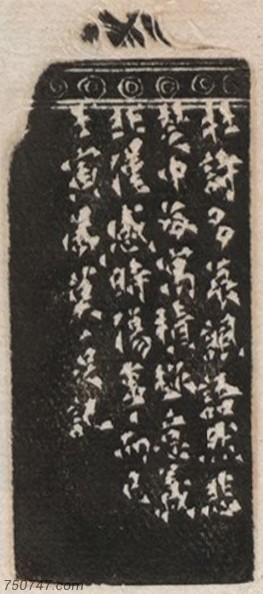 杜詩多哀艱語然悲
楚中每寓積極意義
非僅感時傷而已
壬寅記
750747.com